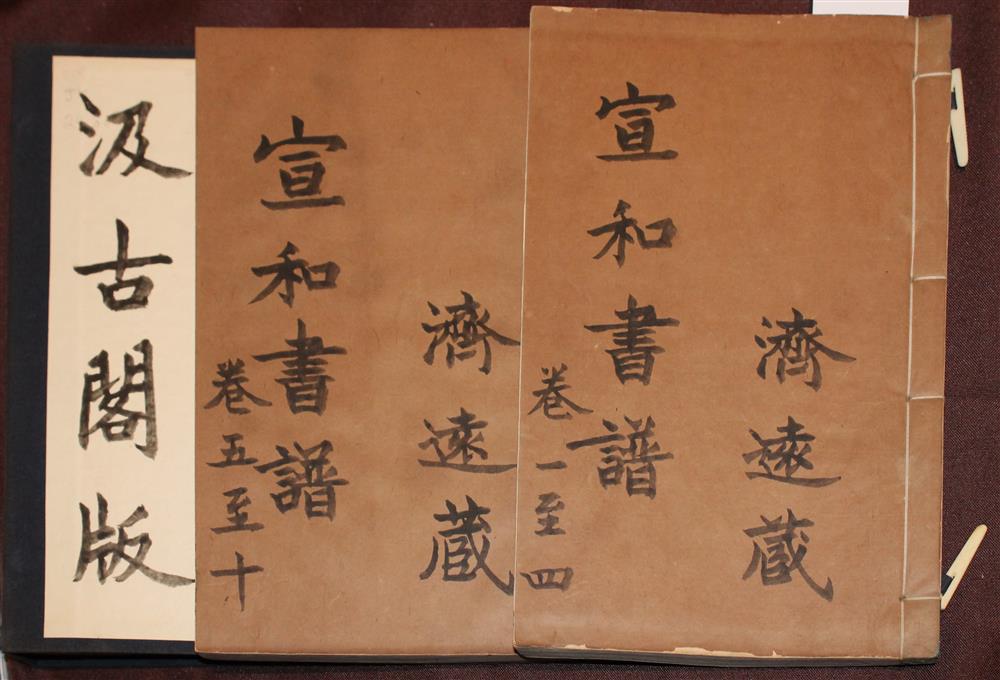 濟遠蔵
宣和書譜
卷一至四
濟遠蔵
宣和書譜
卷五至十
汲古閣版